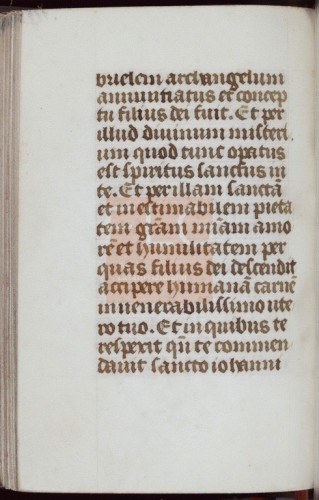 brielem archangelum
annuntiatus et concep
tu filius dei fuit. Et per
illud divinum misteri
um quod tunc opatus
est spiritus sanctus in
te. Et per illam sanctā
et inestimabilem pieta
tem grāni miām amo
rē et humilitatem per
quas filius dei descendit
accipere humanā carnē
in venerabilissimo ute
ro tuo. Et in quibus te
respexit qn̄ te commen
davit sancto iohanni